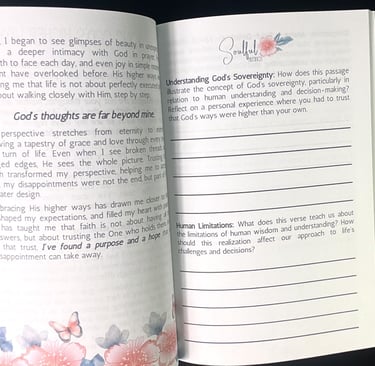 I began to see glimpses of beauty in
a deeper intimacy with God in prayer
to face each day, and even joy in simple
have overlooked before. His higher ways
me that life is not about perfectly
about walking closely with Him, step by step.
God's thoughts are far beyond mine.
perspective stretches from eternity to
a tapestry of grace and love through
turn of life. Even when I see broken
edges, He sees the whole picture. Trusting
transformed my perspective, helping me
my disappointments were not the end, but part
design.
His higher ways has drawn me closer to
my expectations, and filled my heart with
has taught me that faith is not about having
but about trusting the One who holds
that trust, I've found a purpose and a hope
can take away.
Soulful
Understanding God's Sovereignty: How does this passage
illustrate the concept of God's sovereignty, particularly in
relation to human understanding and decision-making?
Reflect on a personal experience where you had to trust
that God's ways were higher than your own.
Human Limitations: What does this verse teach us about
the limitations of human wisdom and understanding? How
should this realization affect our approach to life's
challenges and decisions?